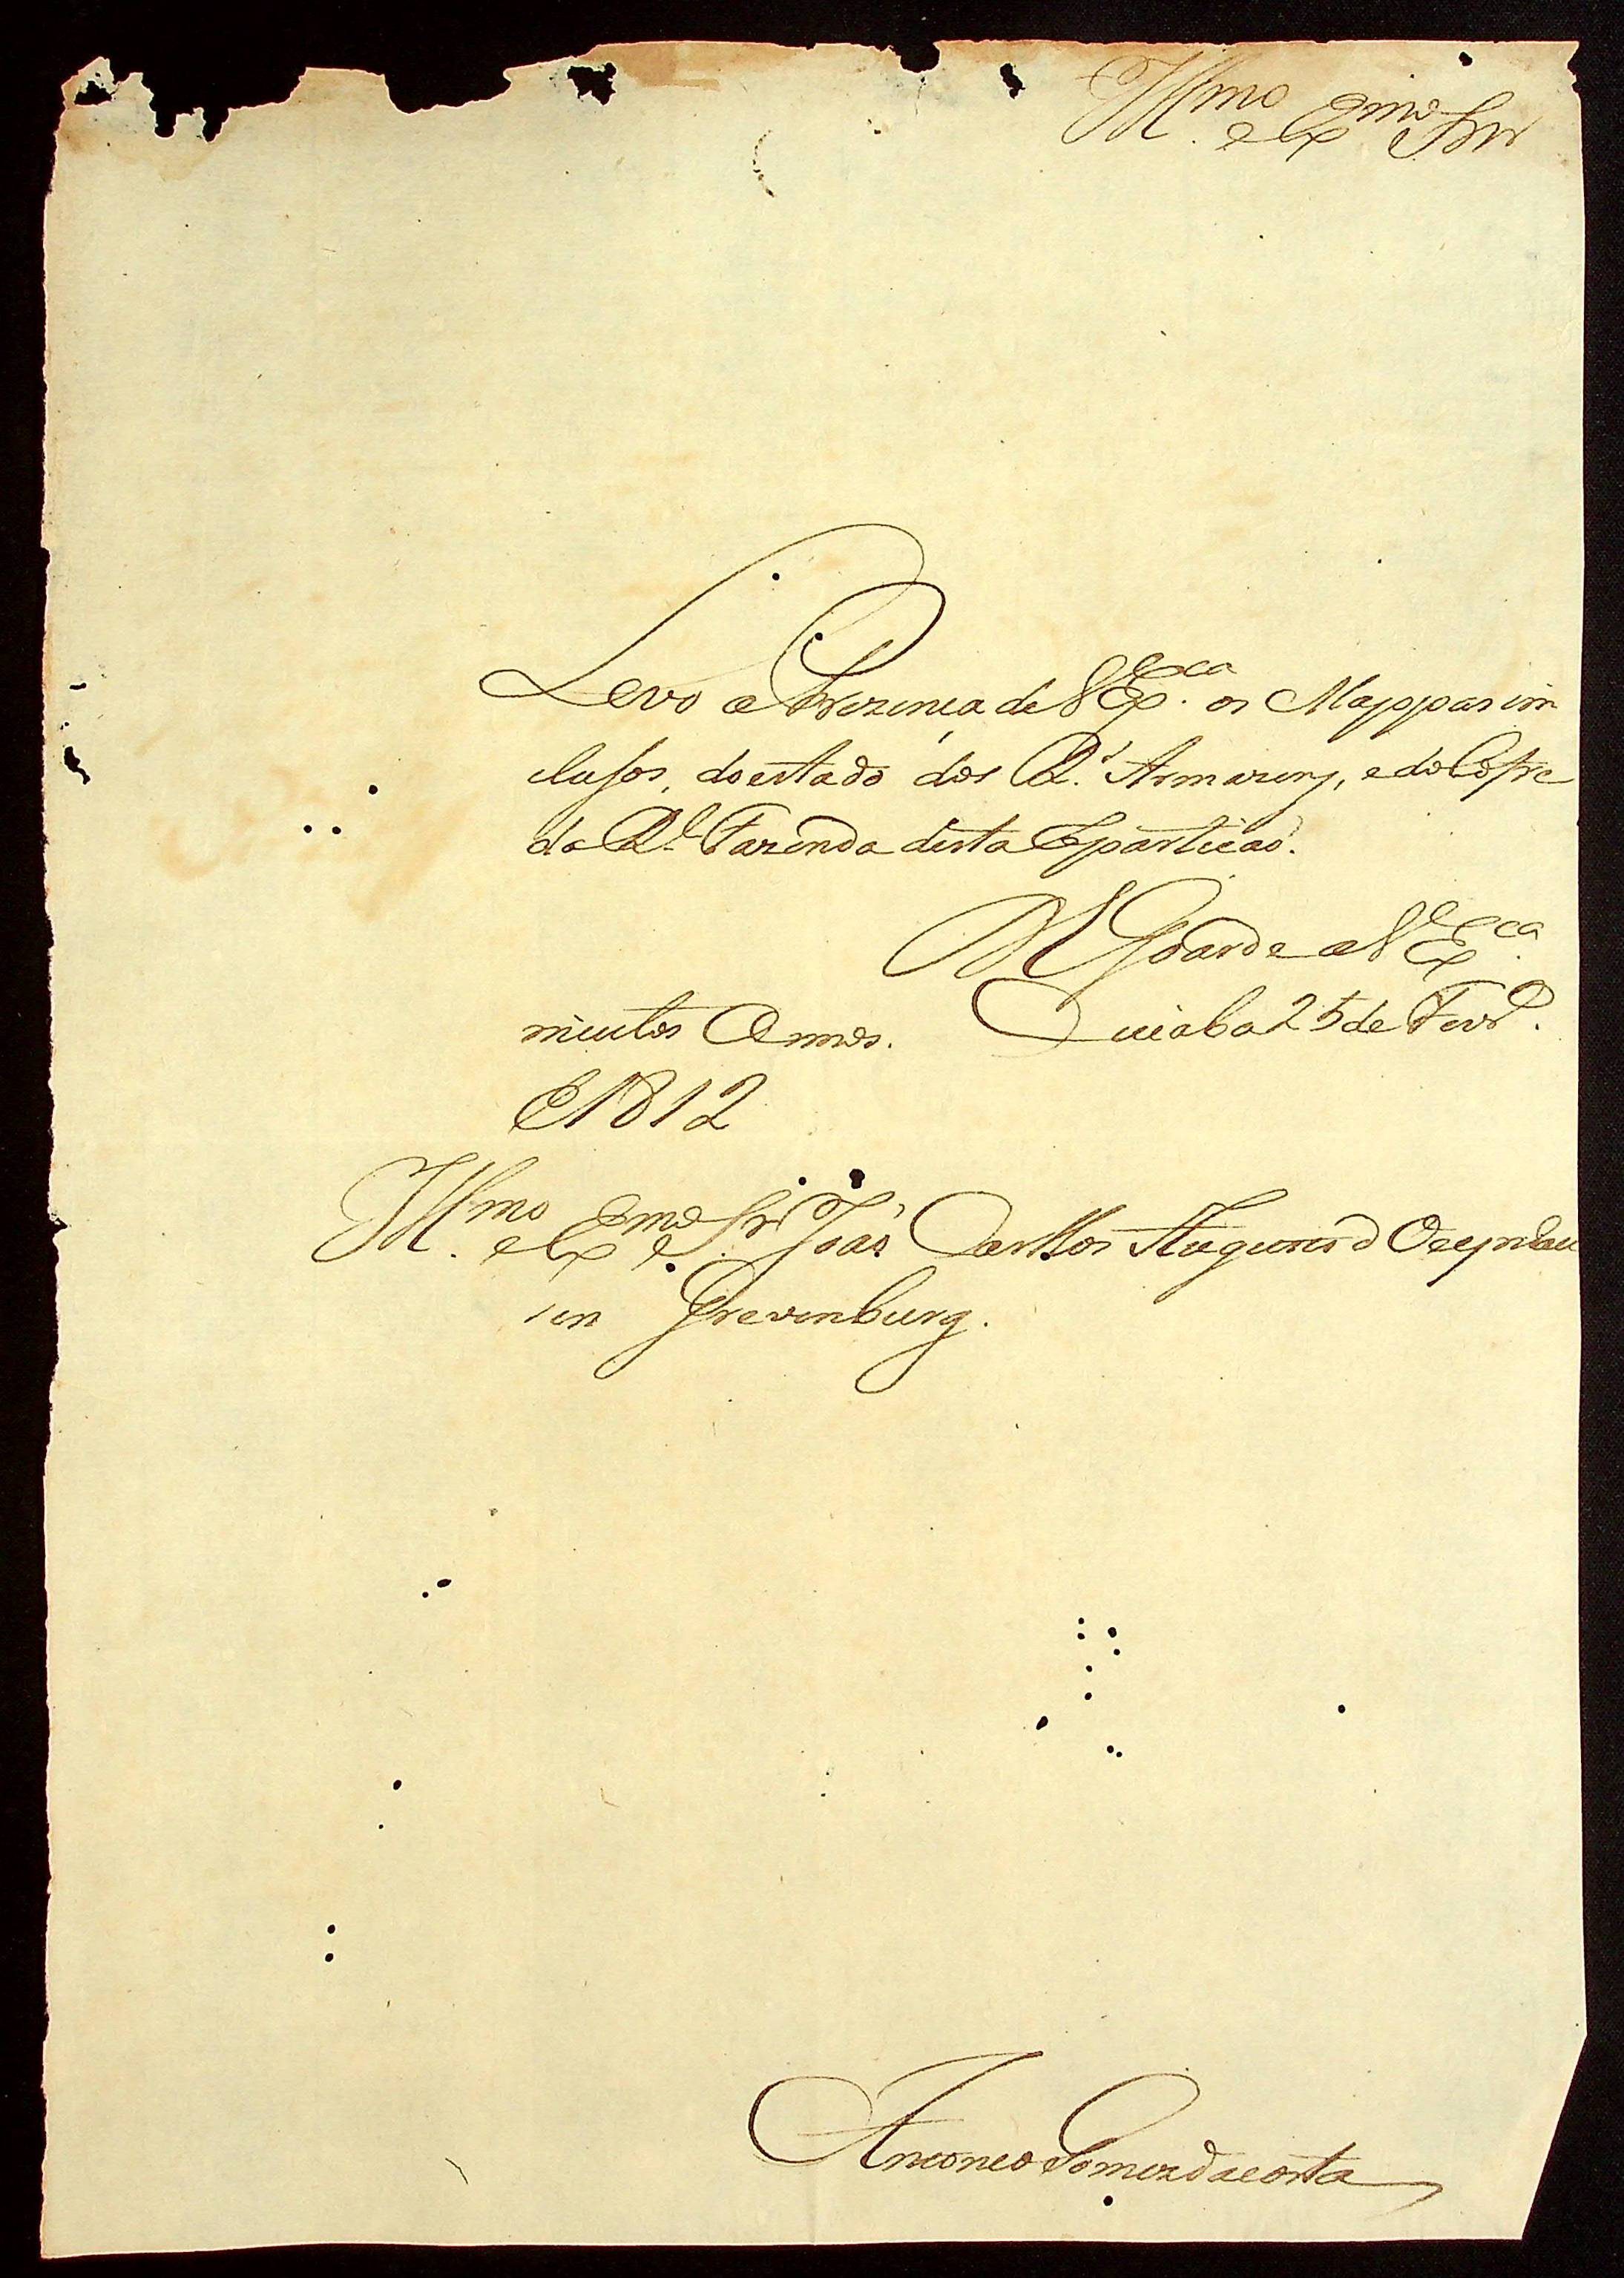 Illmo. e Exmo Snr
Levo a Prezença de V Exca. os Mappas in
clusos, do estado dos Rs. Armazens, e do Cofre
da Rl. Fazenda desta Repartição.
Ds Goarde a V Exca.
muitos Annos. Cuiaba 25 de Fevro.
de 1812
Illmo. e Exmo Snr João Carllos Augusto d Oeynhau
sen Grevenburg.
Antonio Gomez da Costa